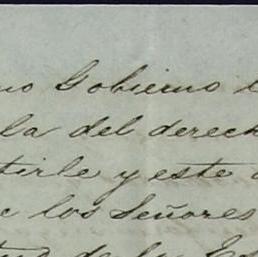 Gobierno
la del derech
tirle y este
los Señores
de la